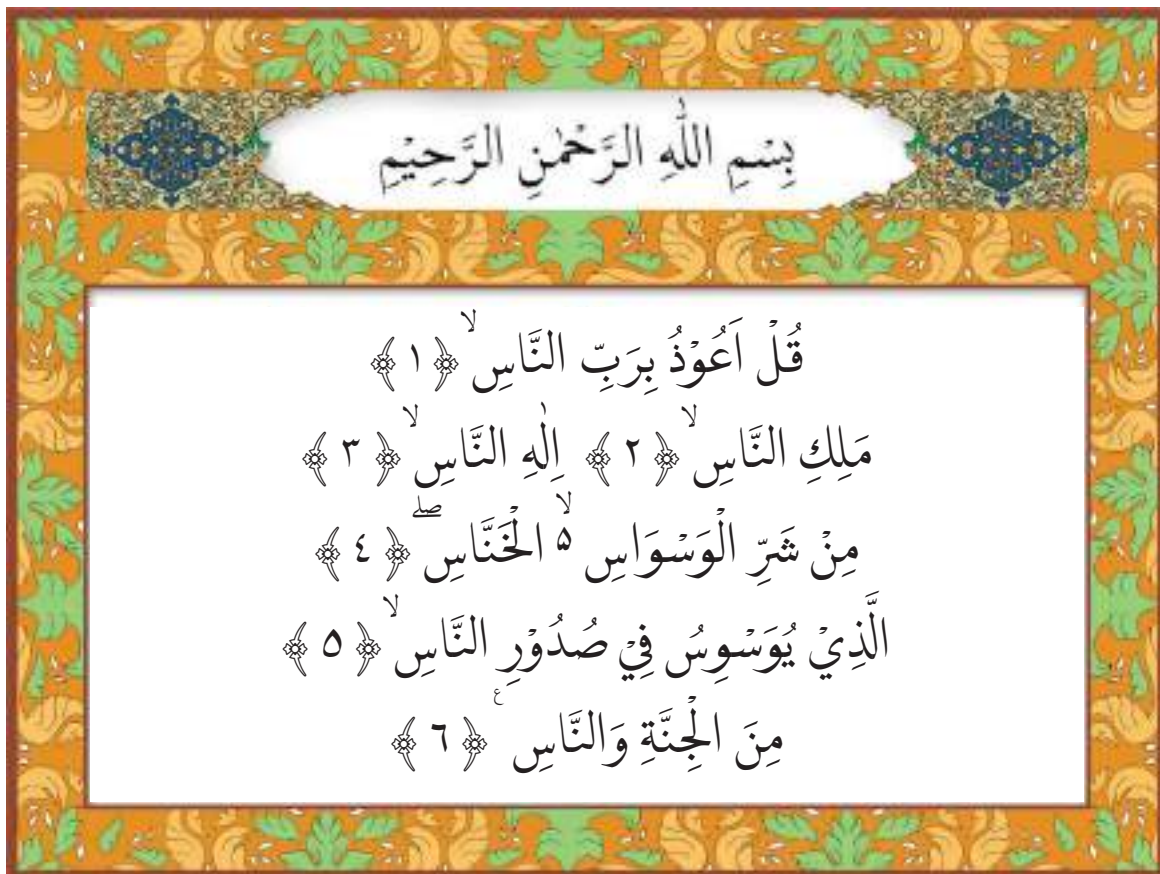 بِسْمِ اللّٰهِ الرَّحْمٰنِ الرَّحِيْمِ
قُلْ اَعُوْذُ بِرَبِّ النَّاسِ ۙ ﴿١﴾
مَلِكِ النَّاسِ ۙ ﴿٢﴾ اِلٰهِ النَّاسِ ۙ ﴿٣﴾
مِنْ شَرِّ الْوَسْوَاسِ ۵ ۙ الْخَنَّاسِ ۖ ﴿٤﴾
الَّذِيْ يُوَسْوِسُ فِيْ صُدُوْرِ النَّاسِ ۙ ﴿٥﴾
مِنَ الْجِنَّةِ وَالنَّاسِ ع ﴿٦﴾